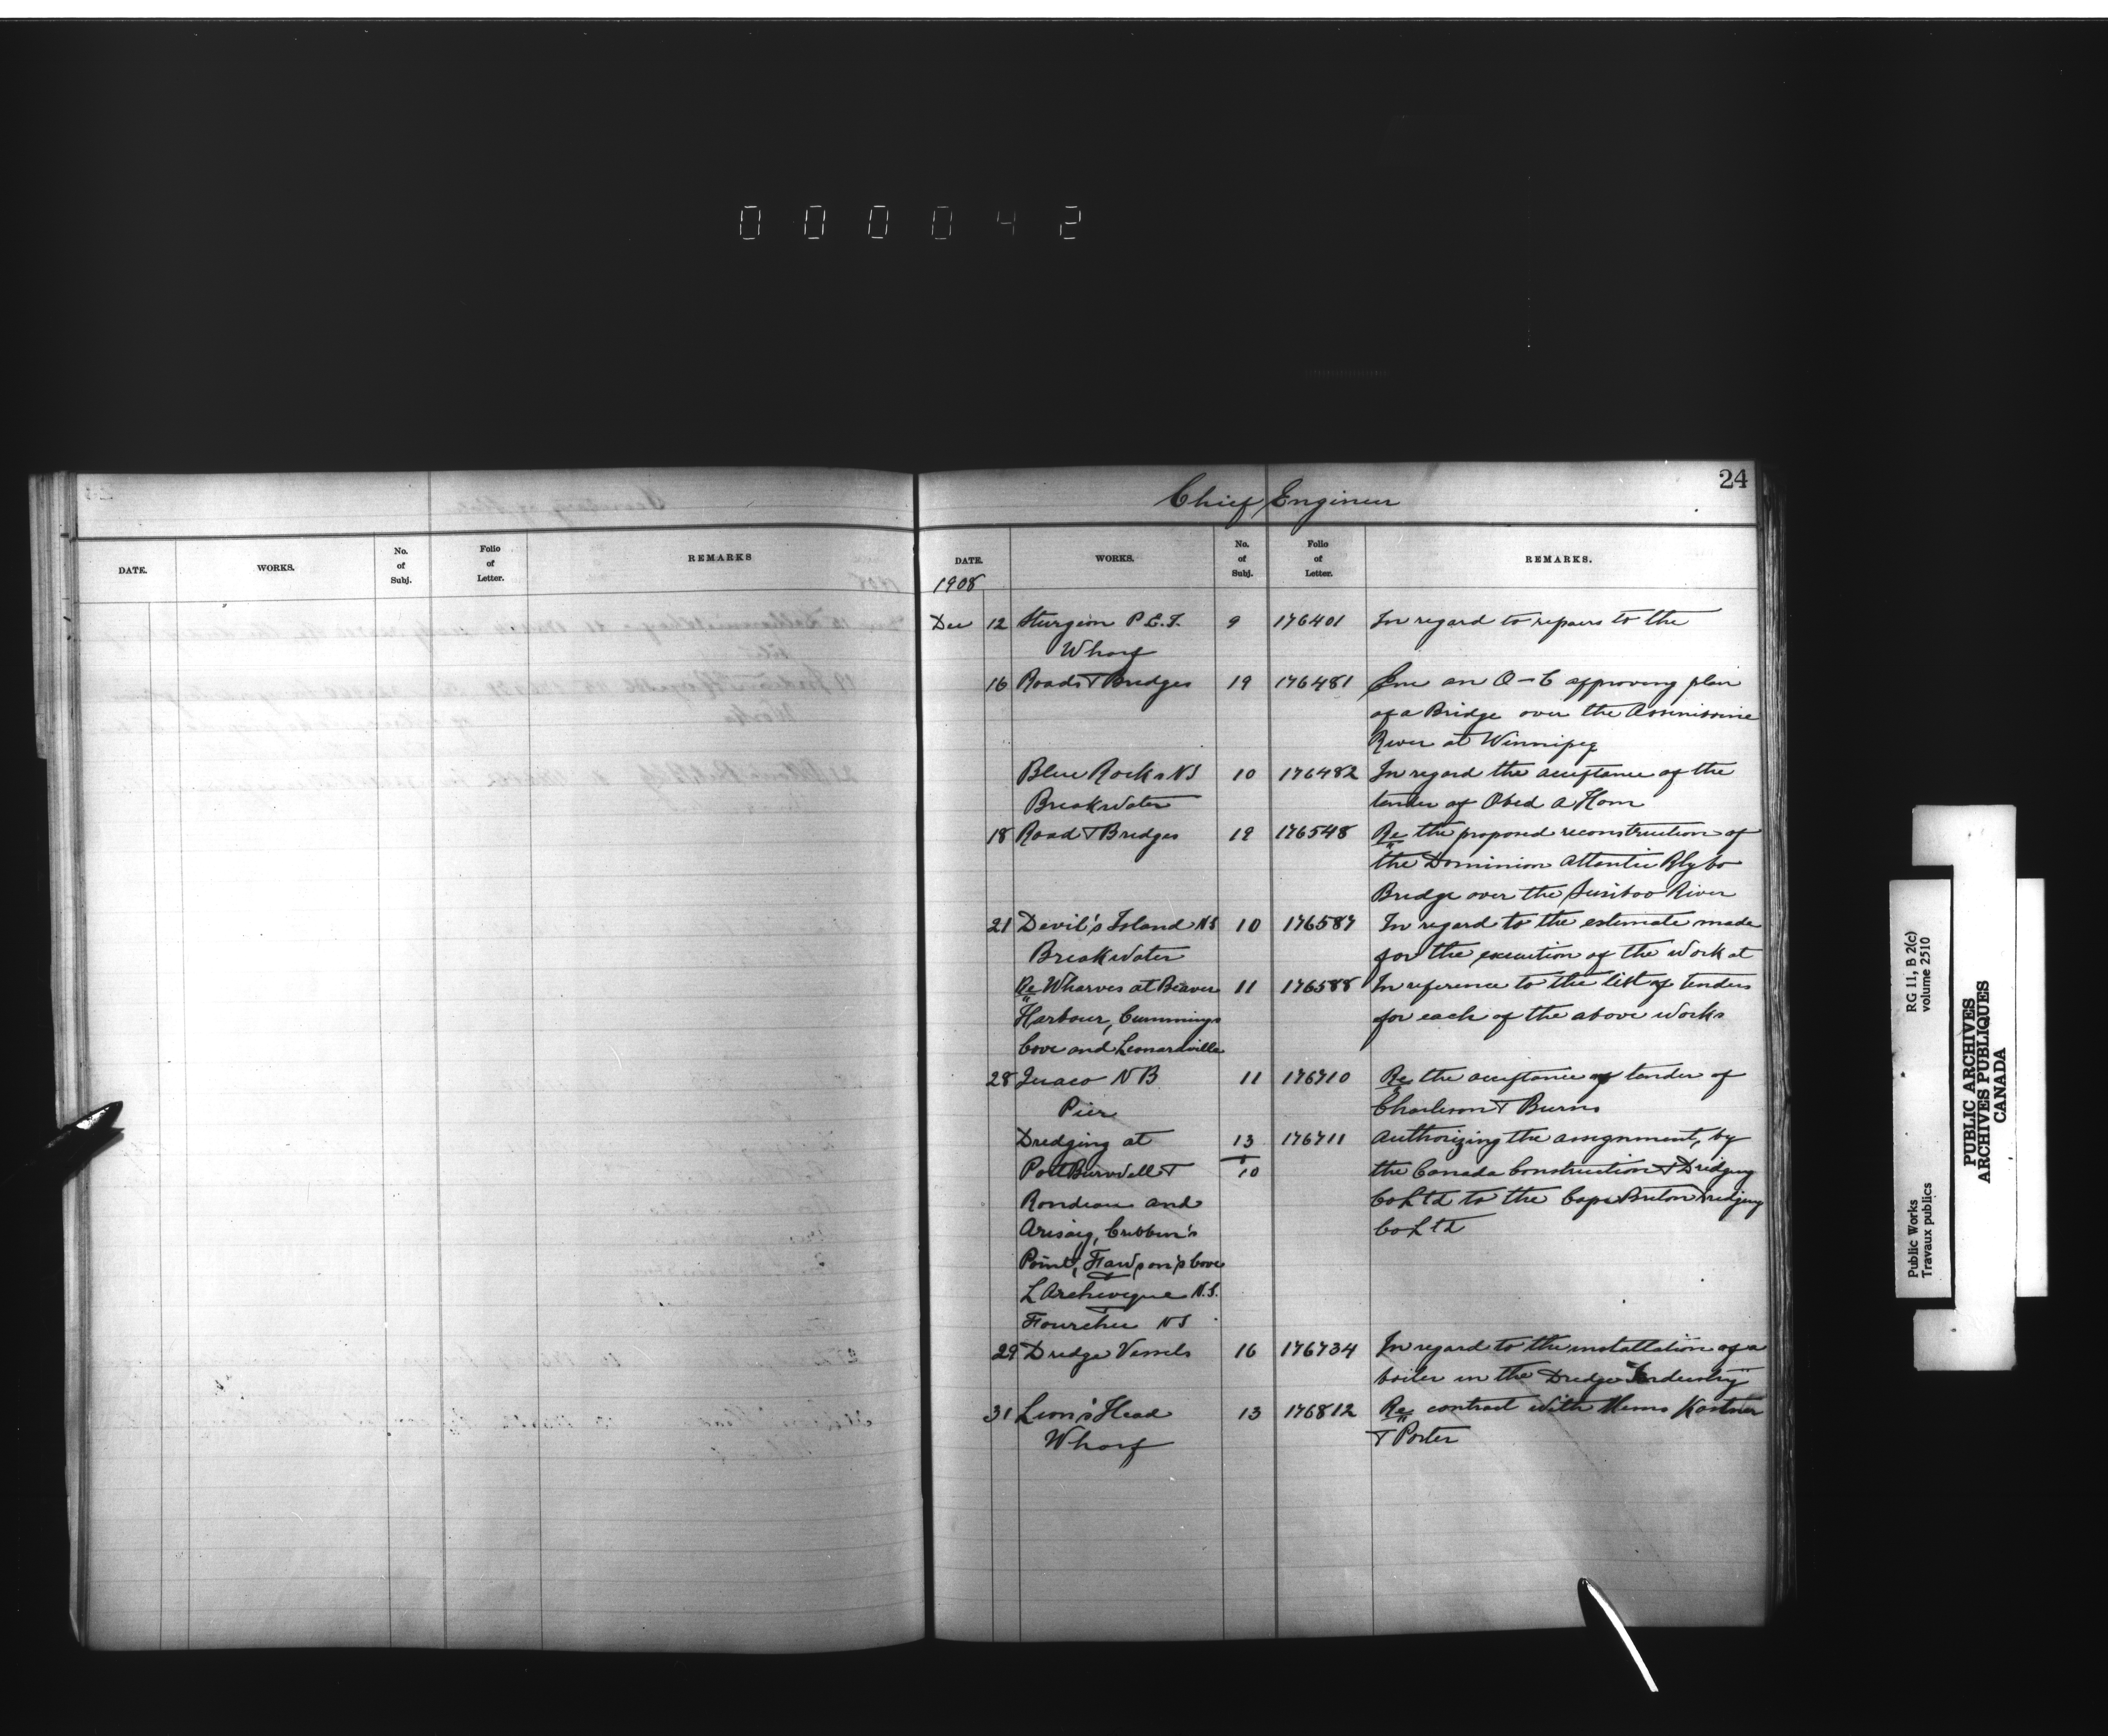 000042
24
Chief Engineer
DATE. WORKS. No. of Subj. Folio of Letter. REMARKS
DATE. WORKS. No. of Subj. Folio of Letter. REMARKS.
1908
Dec 12 Sturgeon P.E.I. 9 176401 In regard to repairs to the
Wharf
16 Roads & Bridges 19 176481 Enc an O-C approving plan
of a Bridge over the Assiniboine
River at Winnipeg
Blue Rocks NS 10 176482 In regard the acceptance of the
Breakwater tender of Obed A Ham
18 Road & Bridges 19 176548 Re the proposed reconstruction of
the Dominion Atlantic Rly Co
Bridge over the Sissiboo River
21 Devil's Island NS 10 176587 In regard to the estimate made
Breakwater for the execution of the work at
Re Wharves at Beaver 11 176588 In reference to the list of tenders
Harbour, Cummings for each of the above works
Cove and Leonardville
28 Quaco NB 11 176710 Re the acceptance of tender of
Pier Charleson & Burns
Dredging at 13 176711 Authorizing the assignment, by
Port Burwell & & 10 the Canada Construction & Dredging
Rondeau and Co Ltd to the Cape Breton Dredging
Arisaig, Cribbin's Co Ltd
Point, Cove
L'Archeveque N.S.
Fourchu NS
29 Dredge Vessels 16 176734 In regard to the installation of a
boiler in the Dredge "Industry"
31 Lion's Head 13 176812 Re contract with Messrs Kastner
Wharf & Porter
RG 11, B 2(c)
volume 2510
Public Works
Travaux publics
PUBLIC ARCHIVES
ARCHIVES PUBLIQUES
CANADA